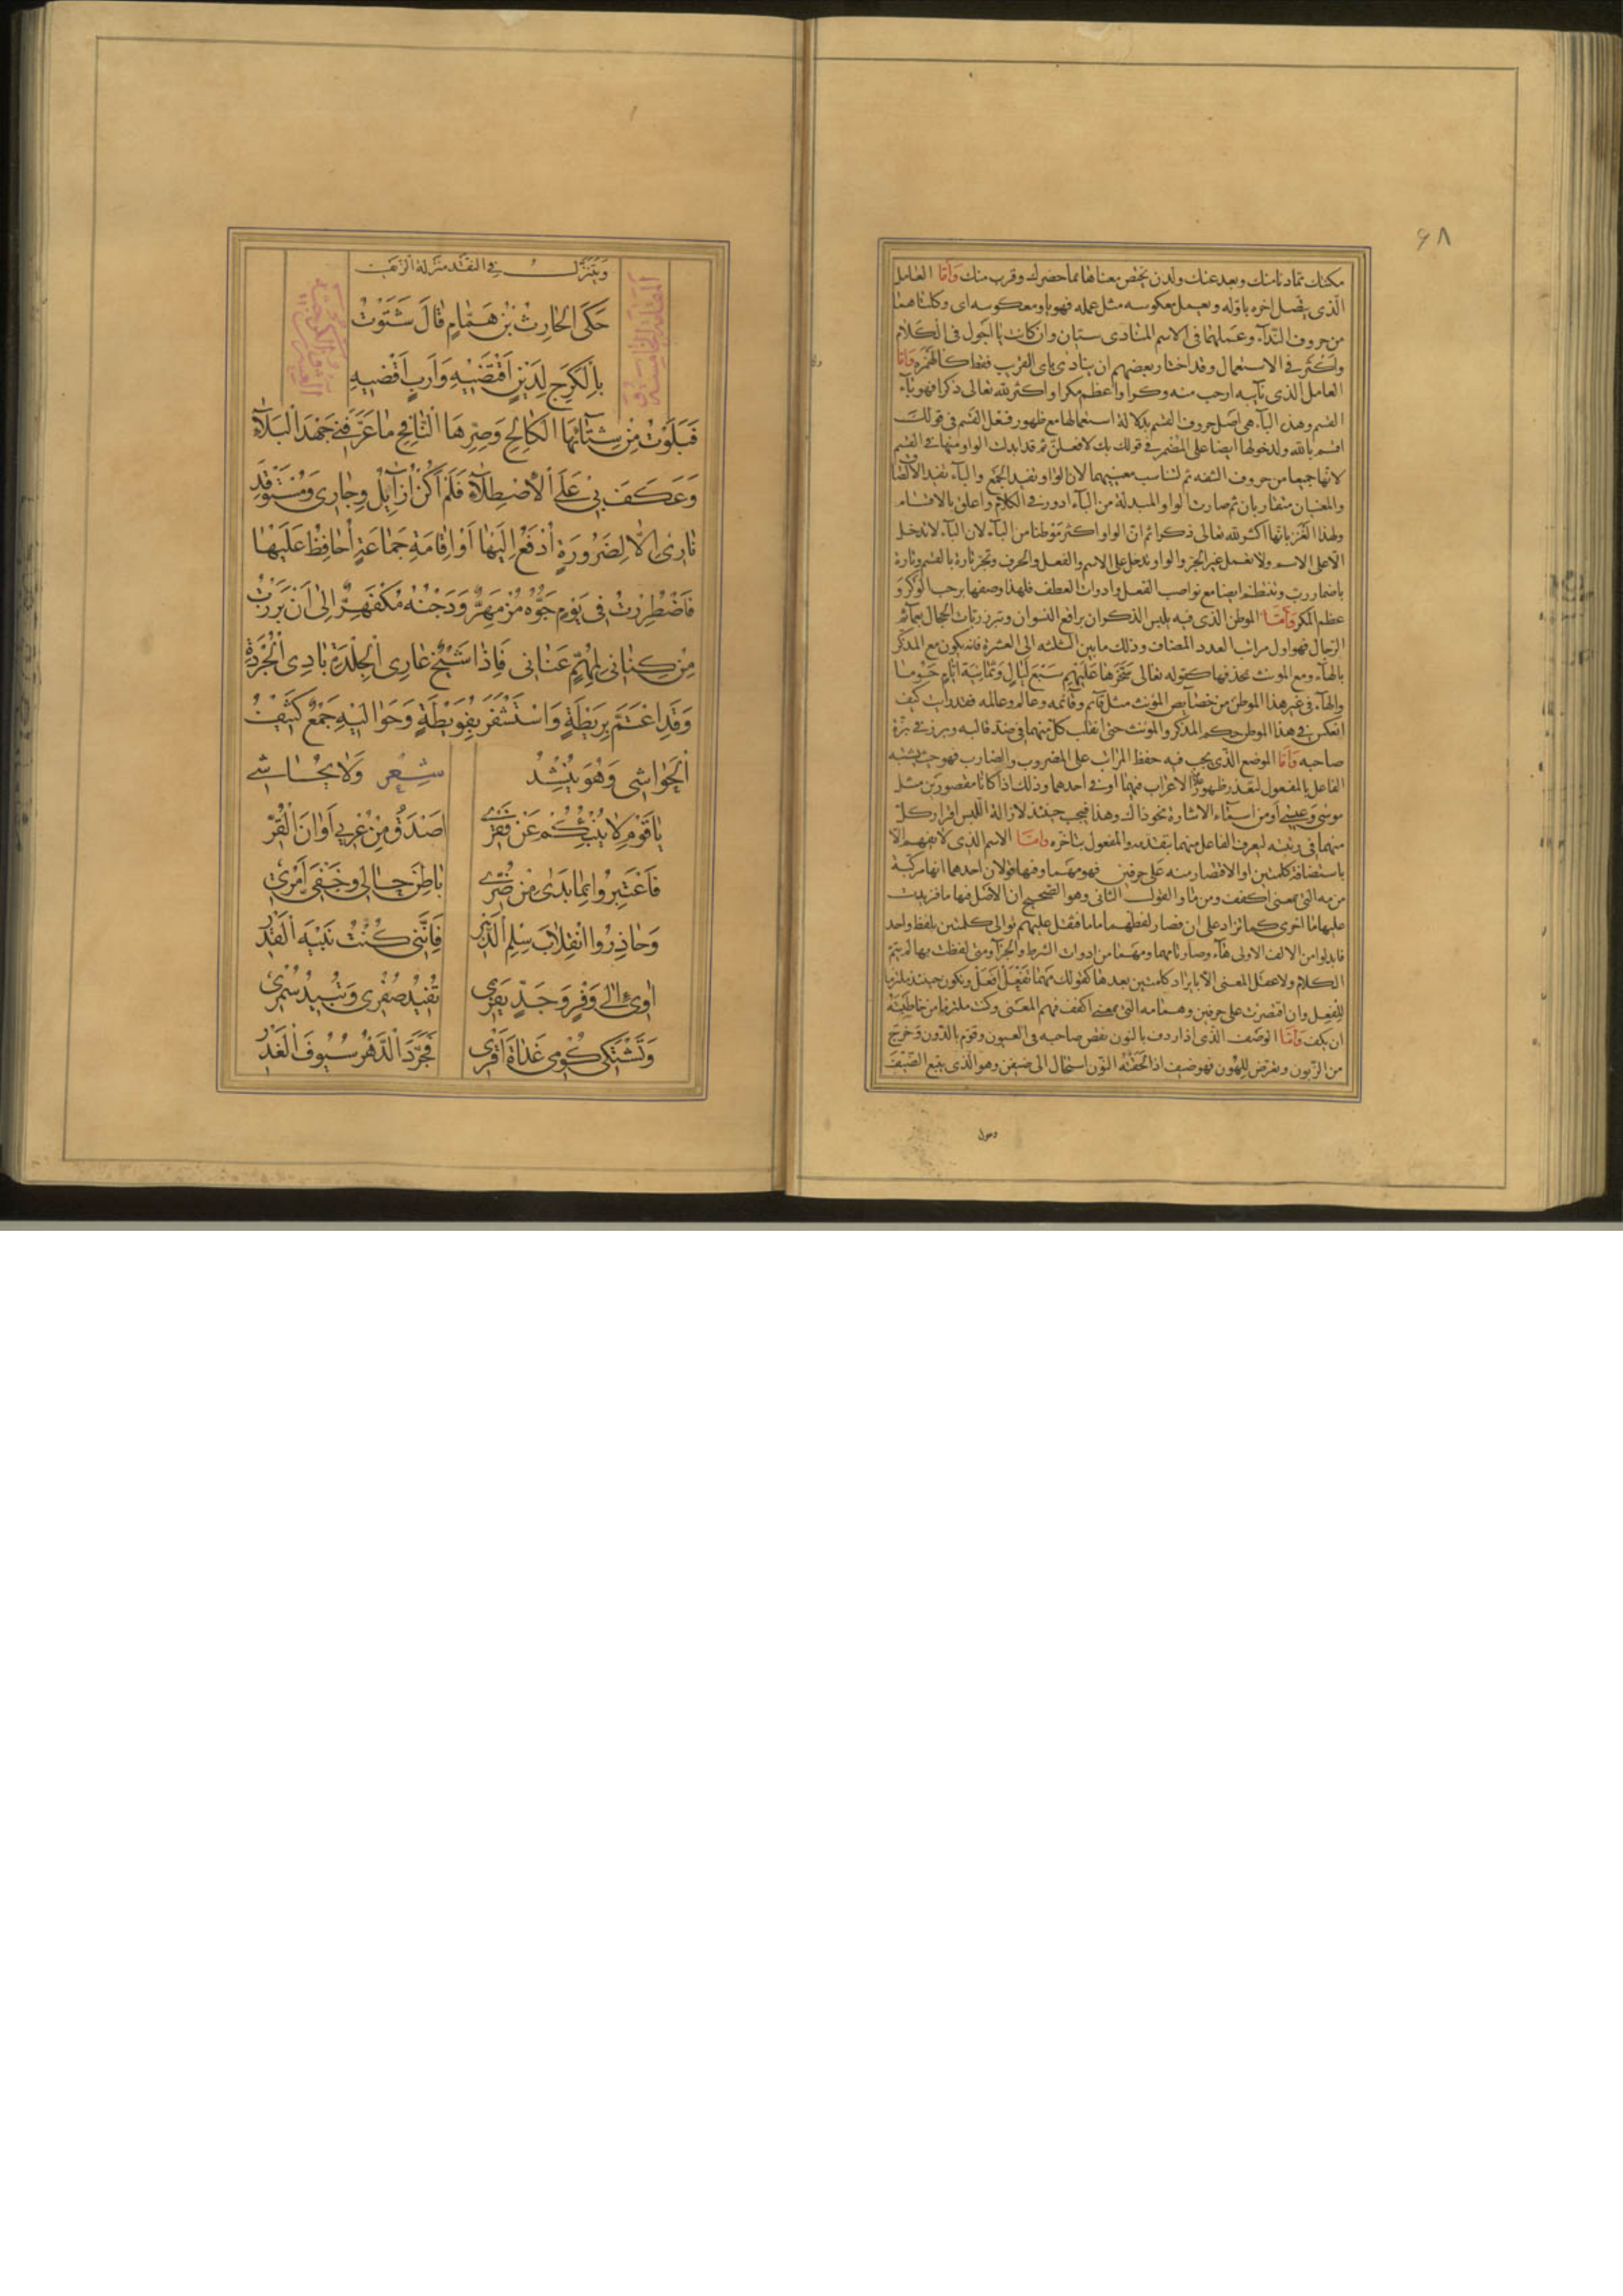 ۶۸
مكنك تمادنا منك وبعد عنك ولدن يختص معناها بما حضرك وقرب منك وأمّا العامل
الّذي يتصل اخره باوّله ويعمل معكوسه مثل عمله فهو يا ومعكوسه اى وكلتاهما
من حروف النّدآء وعملهما فى الاسم المنادى سيّان وان كانت يا اجول فى الكلام
واكثر فى الاستعمال وقد اختار بعضهم ان ينادى باى القريب فقط كالهمزة وأمّا
العامل الذى نآيبه ارحب منه وكرا واعظم مكرا واكثر لله تعالى ذكرا فهو بآء
القسم وهذه البآء هى اصل حروف القسم بدلالة استعمالها مع ظهور فعل القسم فى قولك
اقسم بالله ولدخولها ايضا على المضمر فى قولك بك لافعلنّ ثم قد ابدلت الواو منها فى القسم
لانّها جميعا من حروف الشفة ثم لتناسب معنييهما لان الواو تفيد الجمع والبآء تفيد الالصاق
والمعنيان متقاربان ثم صارت الواو المبدلة من البآء ادور فى الكلام واعلق بالاقسام
ولهذا الغز بانّها اكثر لله تعالى ذكرا ثم انّ الواو اكثر موطنا من البآء لان البآء لا تدخل
الّا على الاسم ولا تعمل غير الجرّ والواو تدخل على الاسم والفعل والحرف وتجر تارة بالقسم وتارة
باضمار ربّ وتنتظم ايضا مع نواصب الفعل وادوات العطف فلهذا وصفها برحب الوكر و
عظم المكر وأمّا الموطن الّذى فيه يلبس الذكران براقع النسوان وتبرز ربّات الحجال بعمآئم
الرّجال فهو اول مراتب العدد المضاف وذلك ما بين الثلثه الى العشرة فانه يكون مع المذكّر
بالهآء ومع المونث بحذفها كقوله تعالى سَخَّرَهَا عَلَيْهِمْ سَبْعَ لَيَالٍ وَثَمَانِيَةَ أَيَّامٍ حُسُومًا
والهآء فى غير هذا الموطن من خصآيص المؤنث مثل قآئم وقآئمه وعالم وعالمه فقد رايت كيف
انعكس فى هذا الموطن حكم المذكر والمونث حتى انقلب كل منهما فى ضد قالبه وبرز فى بزّة
صاحبه وأمّا الموضع الّذى يجب فيه حفظ المراتب على المضروب والضارب فهو حيث يشتبه
الفاعل بالمفعول لتعذر ظهور الاعراب فيهما او فى احدهما وذلك اذا كانا مقصورين مثل
موسى وعيسى او من اسمآء الاشارة نحو ذاك وهذا فيجب حينئذ لازالة اللبس اقرار كلّ
منهما فى رتبته ليعرف الفاعل منهما بتقدمه والمفعول بتاخّره وامّا الاسم الذى لا يفهم الا
باستضافة كلمتين او الاقتصار منه على حرفين فهو مهما وفيها قولان احدهما انها مركبة
من مه التى بمعنى اكفف ومن ما والقول الثانى وهو الصحيح ان الاصل فيها ما فزيدت
عليها ما اخرى كما تزاد على ان فصار لفظهما ما ما فثقل عليهم توالى كلمتين بلفظ واحد
فابدلوا من الالف الاولى هآء وصارتا مهما ومهما من ادوات الشرط والجزآء ومتى لفظت بها لم يتمّ
الكلام ولا عقل المعنى الّا بايراد كلمتين بعدها كقولك مَهْمَا تَفْعَلْ أَفْعَلْ وتكون حينئذ ملتزما
للفعل وان اقتصرت على حرفين وهما مه التى بمعنى اكفف فهم المعنى وكنت ملتزما من خاطبته
ان يكف وأمّا الوصف الّذى اذا اردف بالنون نقص صاحبه فى العيون وقوّم بالدّون وخرج
من الزّبون وتعرّض للهون فهو ضيف اذا لحقته النّون استحال الى ضيفن وهو الّذى يتبع الضّيف
ويتنزّل فى النقد منزلة الزيف
حَكَى الْحَارِثُ بْنُ هَمَّامٍ قَالَ شَتَوْتُ
بِالْكَرَجِ لِدَيْنٍ أَقْتَضِيهِ وَأَرَبٍ أَقْضِيهِ
فَبَلَوْتُ مِنْ شِتَآئِهَا الْكَالِحِ وَصِرِّهَا النَّافِحِ مَا عَرَّفَنِي جَهْدَ الْبَلَآءِ
وَعَكَفَ بِي عَلَى الْاِصْطِلَآءِ فَلَمْ أَكُنْ أُزَايِلُ وِجَارِي وَمُسْتَوْقَدَ
نَارِي إِلَّا لِضَرُورَةٍ أُدْفَعُ إِلَيْهَا أَوْ إِقَامَةِ جَمَاعَةٍ أُحَافِظُ عَلَيْهَا
فَاضْطُرِرْتُ فِي يَوْمٍ جَوُّهُ مُزْمَهِرٌّ وَدَجْنُهُ مُكْفَهِرٌّ إِلَى أَنْ بَرَزْتُ
مِنْ كِنَانِي لِمُهِمٍّ عَنَانِي فَإِذَا شَيْخٌ عَارِي الْجِلْدَةِ بَادِي الْجُرْدَةِ
وَقَدِ اعْتَمَّ بِرَيْطَةٍ وَاسْتَثْفَرَ بِفُوَيْطَةٍ وَحَوَالَيْهِ جَمْعٌ كَثِيفُ
الْحَوَاشِي وَهُوَ يُنْشِدُ شعر وَلَا يُحَاشِي
يَا قَوْمِ لَا يُنْبِئُكُمْ عَنْ فَقْرِي أَصْدَقُ مِنْ عُرْيِي أَوَانَ الْقُرِّ
فَاعْتَبِرُوا بِمَا بَدَى مِنْ ضُرِّي بَاطِنَ حَالِي وَخَفِيَّ أَمْرِي
وَحَاذِرُوا انْقِلَابَ سِلْمِ الدَّهْرِ فَإِنَّنِي كُنْتُ نَبِيهَ الْقَدْرِ
آوِي إِلَى وَفْرٍ وَحَدٍّ يَفْرِي تُفِيدُ صُفْرِي وَتُبِيدُ سُمْرِي
وَتَشْتَكِي كُومِي غَدَاةَ أَقْرِي فَجَرَّدَ الدَّهْرُ سُيُوفَ الْغَدْرِ